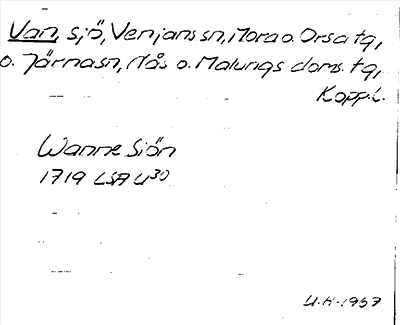 Van, sjö, Venjans sn, Mora o. Orsa tg,
o. Järnasn, Nås o. Malungs doms. tg,
Kopp. l.
Wanne Siön
1719 LSA U30
U.H. 1957